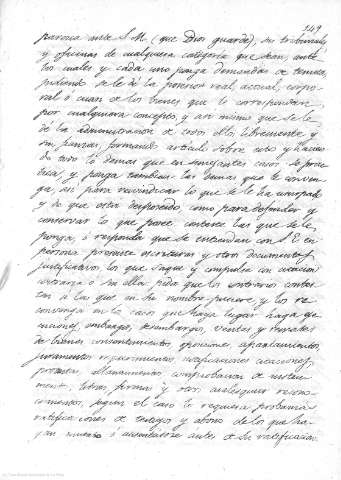 349
parezca ante S. M. (que Dios guarde), sus tribunales
y oficinas de cualquiera categoría que sean, ante
los cuales y cada uno ponga demandas de tenuta,
pidiendo se le dé la posesion real, actual, corpo-
ral ó cuasi de los bienes que le correspondan
por cualquiera concepto, y así mismo que se le
dé la administracion de todos ellos libremente y
sin fianzas, formando artículo sobre esto y hacien-
do todo lo demas que en semejantes casos se prac-
tica, y ponga tambien las demas que le conven-
ga, así para reivindicar lo que se le ha usurpado
y de que está desposeido, como para defender y
conservar lo que posee, conteste las que se le
ponga, ó responda que se entiendan con S. E. en
persona, presente escrituras y otros documentos
justificativos, los que saque y compulse con citacion
contraria ó sin ella, pida que los contrarios contes-
ten á las que en su nombre pusiere y los re-
convenga en los casos que haya lugar, haga eje-
cuciones, embargos, desembargos, ventas y remates
de bienes, consentimientos, oposiciones, apartamientos,
juramentos, requerimientos, notificaciones, citaciones,
protestas, allanamientos, comprobacion de instru-
mentos, letras, firmas y otros cualesquier recono-
cimientos, segun el caso lo requiera, probanzas,
ratificaciones de testigos y abono de los que ha-
yan muerto ó ausentádose antes de su ratificacion